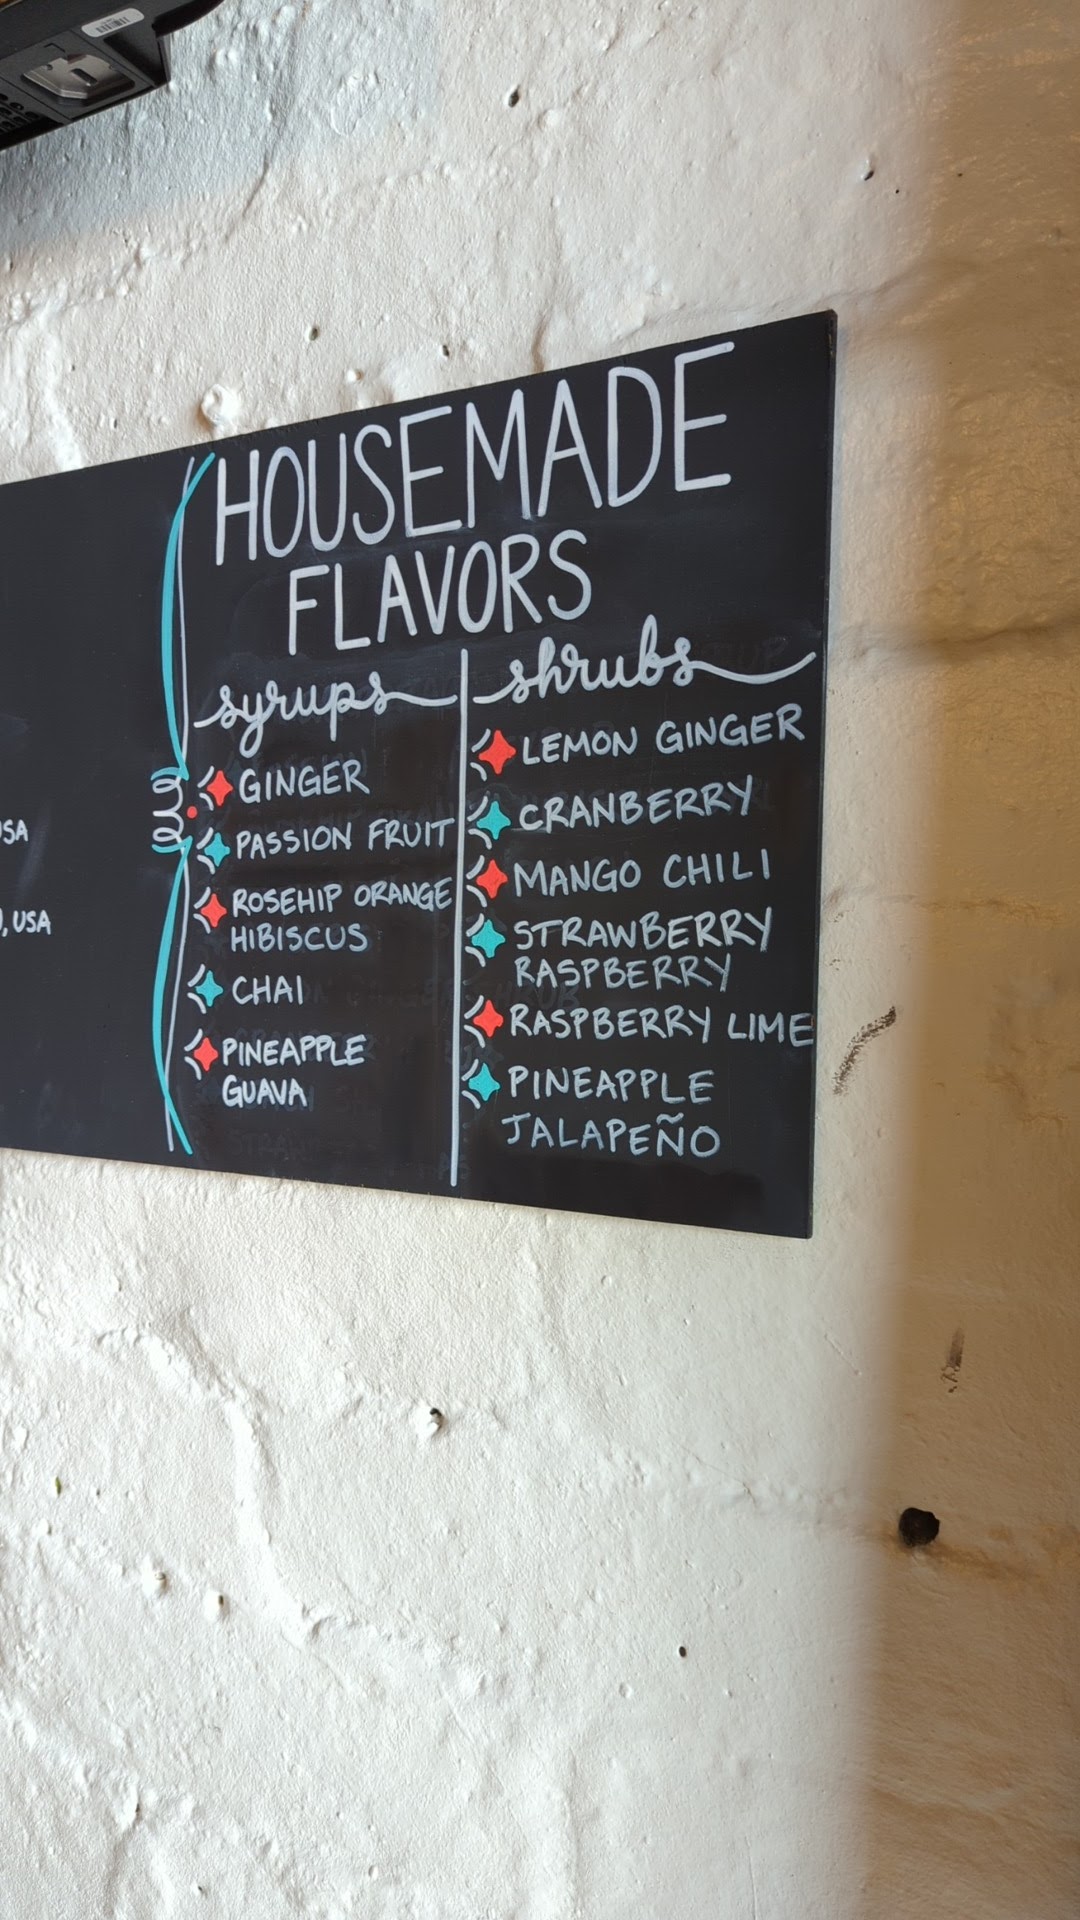 HOUSEMADE
FLAVORS
syrups
GINGER
PASSION FRUIT
ROSEHIP ORANGE
HIBISCUS
CHAI
PINEAPPLE
GUAVA
shrubs
LEMON GINGER
CRANBERRY
MANGO CHILI
STRAWBERRY
RASPBERRY
RASPBERRY LIME
PINEAPPLE
JALAPEÑO
USA
, USA